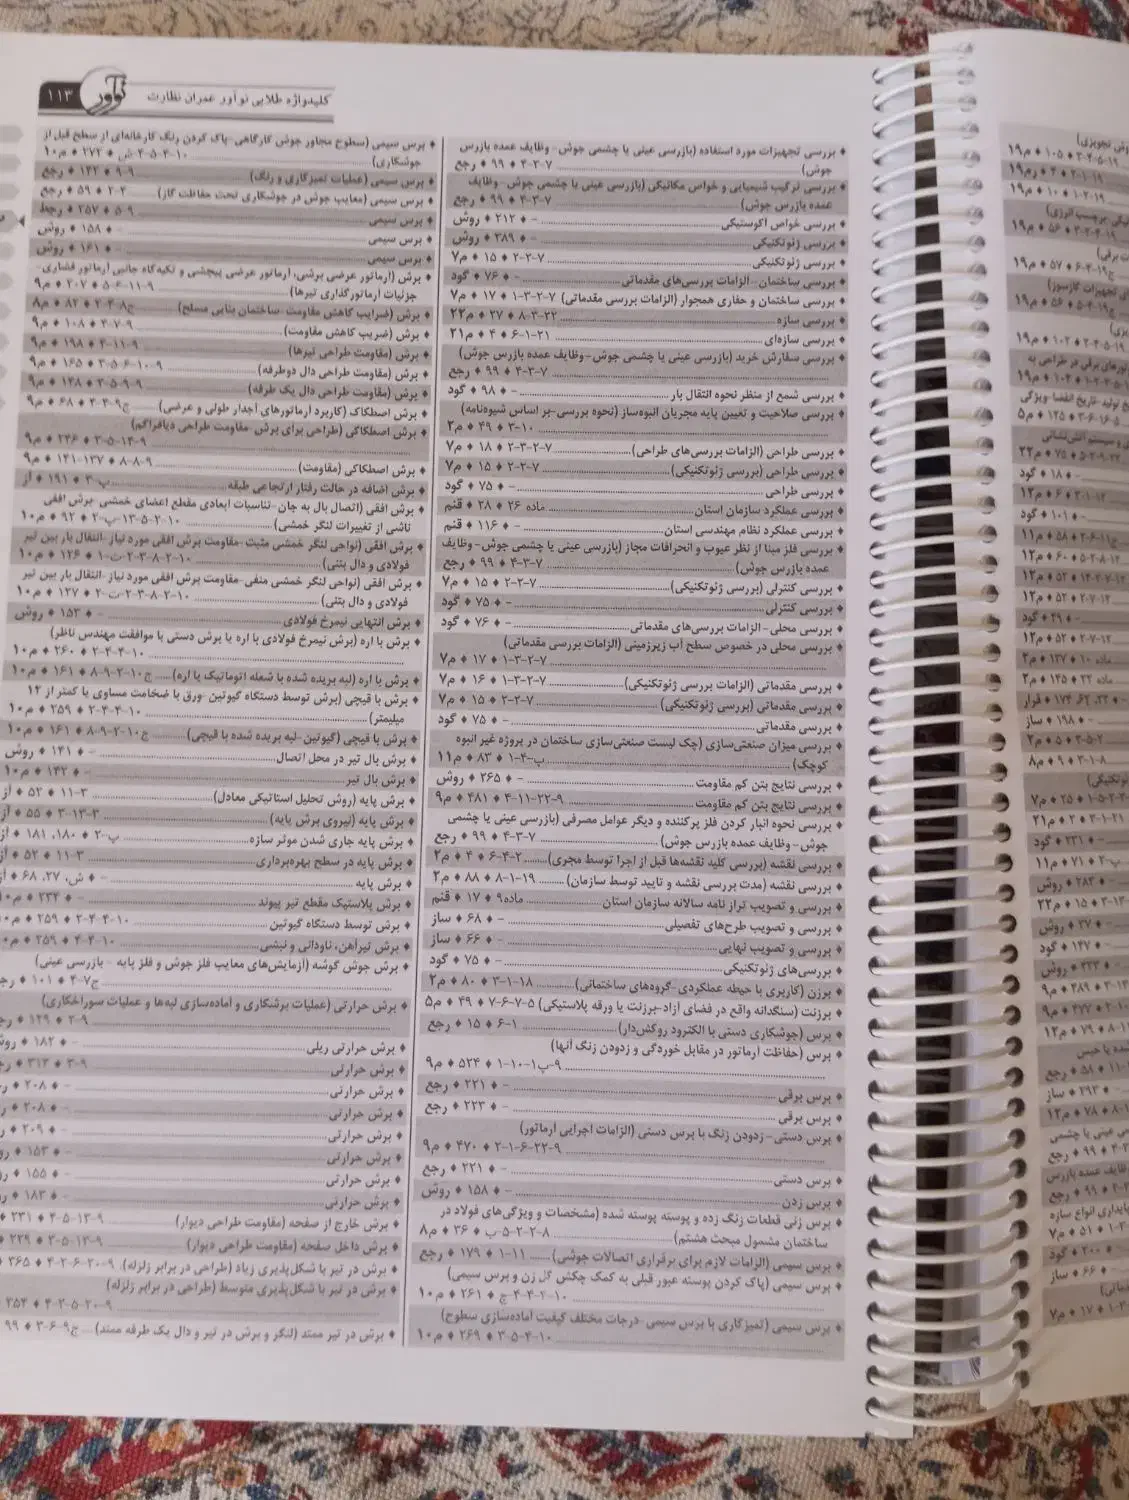 کلیدواژه طلایی نوآور عمران نظارت
نوآور
۱۱۳
♦ بررسی تجهیزات مورد استفاده (بازرسی عینی یا چشمی جوش- وظایف عمده بازرس
جوش) ۷-۳-۴ ♦ ۹۹ ♦ رجع
♦ بررسی ترکیب شیمیایی و خواص مکانیکی (بازرسی عینی یا چشمی جوش- وظایف
عمده بازرس جوش) ۷-۳-۴ ♦ ۹۹ ♦ رجع
♦ بررسی خواص آکوستیکی - ♦ ۲۱۲ ♦ روش
♦ بررسی ژئوتکنیکی - ♦ ۳۸۹ ♦ روش
♦ بررسی ژئوتکنیکی ۷-۲-۲ ♦ ۱۵ ♦ م۷
♦ بررسی ساختمان- الزامات بررسی‌های مقدماتی - ♦ ۷۶ ♦ گود
♦ بررسی ساختمان و حفاری همجوار (الزامات بررسی مقدماتی) ۷-۲-۳-۱ ♦ ۱۷ ♦ م۷
♦ بررسی سازه ۲۲-۳-۸ ♦ ۲۷ ♦ م۲۲
♦ بررسی سازه‌ای ۲۱-۱-۶ ♦ ۴ ♦ م۲۱
♦ بررسی سفارش خرید (بازرسی عینی یا چشمی جوش-وظایف عمده بازرس جوش)
۷-۳-۴ ♦ ۹۹ ♦ رجع
♦ بررسی شمع از منظر نحوه انتقال بار - ♦ ۹۸ ♦ گود
♦ بررسی صلاحیت و تعیین پایه مجریان انبوه‌ساز (نحوه بررسی-بر اساس شیوه‌نامه)
۱۰-۳ ♦ ۴۹ ♦ م۲
♦ بررسی طراحی (الزامات بررسی‌های طراحی) ۷-۲-۳-۲ ♦ ۱۸ ♦ م۷
♦ بررسی طراحی (بررسی ژئوتکنیکی) ۷-۲-۲ ♦ ۱۵ ♦ م۷
♦ بررسی طراحی - ♦ ۷۵ ♦ گود
♦ بررسی عملکرد سازمان استان ماده ۲۶ ♦ ۲۸ ♦ قنم
♦ بررسی عملکرد نظام مهندسی استان - ♦ ۱۱۶ ♦ قنم
♦ بررسی فلز مبنا از نظر عیوب و انحرافات مجاز (بازرسی عینی یا چشمی جوش- وظایف
عمده بازرس جوش) ۷-۳-۴ ♦ ۹۹ ♦ رجع
♦ بررسی کنترلی (بررسی ژئوتکنیکی) ۷-۲-۲ ♦ ۱۵ ♦ م۷
♦ بررسی کنترلی - ♦ ۷۵ ♦ گود
♦ بررسی محلی- الزامات بررسی‌های مقدماتی - ♦ ۷۶ ♦ گود
♦ بررسی محلی در خصوص سطح آب زیرزمینی (الزامات بررسی مقدماتی)
۷-۲-۳-۱ ♦ ۱۷ ♦ م۷
♦ بررسی مقدماتی (الزامات بررسی ژئوتکنیکی) ۷-۲-۳-۱ ♦ ۱۶ ♦ م۷
♦ بررسی مقدماتی (بررسی ژئوتکنیکی) ۷-۲-۲ ♦ ۱۵ ♦ م۷
♦ بررسی مقدماتی - ♦ ۷۵ ♦ گود
♦ بررسی میزان صنعتی‌سازی (چک لیست صنعتی‌سازی ساختمان در پروژه غیر انبوه
کوچک) پ-۴-۱ ♦ ۸۳ ♦ م۱۱
♦ بررسی نتایج بتن کم مقاومت - ♦ ۲۶۵ ♦ روش
♦ بررسی نتایج بتن کم مقاومت ۹-۲۲-۱۱-۴ ♦ ۴۸۱ ♦ م۹
♦ بررسی نحوه انبار کردن فلز پرکننده و دیگر عوامل مصرفی (بازرسی عینی یا چشمی
جوش-وظایف عمده بازرس جوش) ۷-۳-۴ ♦ ۹۹ ♦ رجع
♦ بررسی نقشه (بررسی کلیه نقشه‌ها قبل از اجرا توسط مجری) ۲-۴-۶ ♦ ۴ ♦ م۲
♦ بررسی نقشه (مدت بررسی نقشه و تایید توسط سازمان) ۱۹-۱-۸ ♦ ۸۸ ♦ م۲
♦ بررسی و تصویب تراز نامه سالانه سازمان استان ماده۹ ♦ ۱۷ ♦ قنم
♦ بررسی و تصویب طرح‌های تفصیلی - ♦ ۶۸ ♦ ساز
♦ بررسی و تصویب نهایی - ♦ ۶۶ ♦ ساز
♦ بررسی‌های ژئوتکنیکی - ♦ ۷۵ ♦ گود
♦ برزن (کاربری با حیطه عملکردی-گروه‌های ساختمانی) ۱۸-۱-۳ ♦ ۸۰ ♦ م۲
♦ برزنت (سنگدانه واقع در فضای آزاد-برزنت یا ورقه پلاستیکی) ۵-۷-۶-۷ ♦ ۴۹ ♦ م۵
♦ برس (جوشکاری دستی با الکترود روکش‌دار) ۱-۶ ♦ ۱۵ ♦ رجع
♦ برس (حفاظت آرماتور در مقابل خوردگی و زدودن زنگ آنها)
۹-پ۱-۱۰-۱ ♦ ۵۲۴ ♦ م۹
♦ برس برقی - ♦ ۲۲۱ ♦ رجع
♦ برس برقی - ♦ ۲۲۳ ♦ رجع
♦ برس دستی- زدودن زنگ با برس دستی (الزامات اجرایی آرماتور)
۹-۲۲-۶-۱-۲ ♦ ۴۷۰ ♦ م۹
♦ برس دستی - ♦ ۲۲۱ ♦ رجع
♦ برس زدن - ♦ ۱۵۸ ♦ روش
♦ برس زنی قطعات زنگ زده و پوسته پوسته شده (مشخصات و ویژگی‌های فولاد در
ساختمان مشمول مبحث هشتم) ۸-۲-۲-۵-ب ♦ ۳۶ ♦ م۸
♦ برس سیمی (الزامات لازم برای برقراری اتصالات جوشی) ۱۱-۱ ♦ ۱۷۹ ♦ رجع
♦ برس سیمی (پاک کردن پوسته عبور قبلی به کمک چکش گل زن و برس سیمی)
۱۰-۴-۴-۲-ج ♦ ۲۶۱ ♦ م۱۰
♦ برس سیمی (تمیزکاری با برس سیمی-درجات مختلف کیفیت آماده‌سازی سطوح)
۱۰-۴-۵-۳ ♦ ۲۶۹ ♦ م۱۰
♦ برس سیمی (سطوح مجاور جوش کارگاهی-پاک کردن رنگ کارخانه‌ای از سطح قبل از
جوشکاری) ۱۰-۴-۵-۴-ش ♦ ۲۷۲ ♦ م۱۰
♦ برس سیمی (عملیات تمیزکاری و رنگ) ۹-۹ ♦ ۱۴۲ ♦ رجع
♦ برس سیمی (معایب جوش در جوشکاری تحت حفاظت گاز) ۲-۲ ♦ ۵۹ ♦ رجع
♦ برس سیمی ۹-۵ ♦ ۲۵۷ ♦ رجط
♦ برس سیمی - ♦ ۱۵۸ ♦ روش
♦ برس سیمی - ♦ ۱۶۱ ♦ روش
♦ برش (آرماتور عرضی برشی، آرماتور عرضی پیچشی و تکیه‌گاه جانبی آرماتور فشاری-
جزئیات آرماتورگذاری تیرها) ۹-۱۱-۶-۵ ♦ ۲۰۷ ♦ م۹
♦ برش (ضرایب کاهش مقاومت-ساختمان بنایی مسلح) ج۸-۴-۲ ♦ ۸۲ ♦ م۸
♦ برش (ضریب کاهش مقاومت) ۹-۷-۴ ♦ ۱۰۸ ♦ م۹
♦ برش (مقاومت طراحی تیرها) ۹-۱۱-۴ ♦ ۱۹۸ ♦ م۹
♦ برش (مقاومت طراحی دال دوطرفه) ۹-۱۰-۶-۵-۳ ♦ ۱۶۵ ♦ م۹
♦ برش (مقاومت طراحی دال یک طرفه) ۹-۹-۵-۳ ♦ ۱۳۸ ♦ م۹
♦ برش اصطکاک (کاربرد آرماتورهای آجدار طولی و عرضی) ج۹-۴-۴ ♦ ۶۸ ♦ م۹
♦ برش اصطکاکی (طراحی برای برش-مقاومت طراحی دیافراگم)
۹-۱۴-۵-۳ ♦ ۲۴۶ ♦ م۹
♦ برش اصطکاکی (مقاومت) ۹-۸-۸ ♦ ۱۳۷-۱۴۱ ♦ م۹
♦ برش اضافه در حالت رفتار ارتجاعی طبقه پ-۳ ♦ ۱۹۱ ♦ آز
♦ برش افقی (اتصال بال به جان-تناسبات ابعادی مقطع اعضای خمشی-برش افقی
ناشی از تغییرات لنگر خمشی) ۱۰-۲-۵-۱۳-پ-۲ ♦ ۹۲ ♦ م۱۰
♦ برش افقی (نواحی لنگر خمشی مثبت-مقاومت برش افقی مورد نیاز-انتقال بار بین تیر
فولادی و دال بتنی) ۱۰-۲-۸-۳-۲-ت-۱ ♦ ۱۲۶ ♦ م۱۰
♦ برش افقی (نواحی لنگر خمشی منفی-مقاومت برش افقی مورد نیاز-انتقال بار بین تیر
فولادی و دال بتنی) ۱۰-۲-۸-۳-۲-ت-۲ ♦ ۱۲۷ ♦ م۱۰
♦ برش انتهایی نیمرخ فولادی - ♦ ۱۵۳ ♦ روش
♦ برش با اره (برش نیمرخ فولادی با اره یا برش دستی با موافقت مهندس ناظر)
۱۰-۴-۴-۲ ♦ ۲۶۰ ♦ م۱۰
♦ برش با اره (لبه بریده شده با شعله اتوماتیک یا اره) ج۱۰-۲-۹-۸ ♦ ۱۶۱ ♦ م۱۰
♦ برش با قیچی (برش توسط دستگاه گیوتین-ورق با ضخامت مساوی یا کمتر از ۱۲
میلیمتر) ۱۰-۴-۴-۲ ♦ ۲۵۹ ♦ م۱۰
♦ برش با قیچی (گیوتین-لبه بریده شده با قیچی) ج۱۰-۲-۹-۸ ♦ ۱۶۱ ♦ م۱۰
♦ برش بال تیر در محل اتصال - ♦ ۱۴۱ ♦ روش
♦ برش بال تیر - ♦ ۱۴۲ ♦ م۱۰
♦ برش پایه (روش تحلیل استاتیکی معادل) ۳-۱۱ ♦ ۵۲ ♦ آز
♦ برش پایه (نیروی برش پایه) ۳-۱۳-۳ ♦ ۵۵ ♦ آز
♦ برش پایه جاری شدن موثر سازه پ-۲ ♦ ۱۸۰، ۱۸۱ ♦ آز
♦ برش پایه در سطح بهره‌برداری ۳-۱۱ ♦ ۵۲ ♦ آز
♦ برش پایه - ♦ ش، ۲۷، ۶۸ ♦ آز
♦ برش پلاستیک مقطع تیر پیوند - ♦ ۲۳۴ ♦ م۱۰
♦ برش توسط دستگاه گیوتین ۱۰-۴-۴-۲ ♦ ۲۵۹ ♦
♦ برش تیرآهن، ناودانی و نبشی ۱۰-۴-۴ ♦ ۲۵۹ ♦
♦ برش جوش گوشه (آزمایش‌های معایب فلز جوش و فلز پایه - بازرسی عینی)
ج۷-۴ ♦ ۱۰۱ ♦
♦ برش حرارتی (عملیات برشکاری و آماده‌سازی لبه‌ها و عملیات سوراخکاری)
۹-۲ ♦ ۱۲۹ ♦
♦ برش حرارتی ریلی - ♦ ۱۸۲ ♦
♦ برش حرارتی ۹-۳ ♦ ۳۱۳ ♦
♦ برش حرارتی - ♦ ۲۰۸ ♦
♦ برش حرارتی - ♦ ۲۰۸ ♦
♦ برش حرارتی - ♦ ۲۰۹ ♦
♦ برش حرارتی - ♦ ۱۵۳ ♦
♦ برش حرارتی - ♦ ۱۵۵ ♦
♦ برش حرارتی - ♦ ۱۸۳ ♦
♦ برش خارج از صفحه (مقاومت طراحی دیوار) ۹-۱۳-۵-۴ ♦ ۲۳۱ ♦
♦ برش داخل صفحه (مقاومت طراحی دیوار) ۹-۱۳-۵-۳ ♦ ۲۲۹ ♦
♦ برش در تیر با شکل‌پذیری زیاد (طراحی در برابر زلزله) ۹-۲۰-۶-۲-۴ ♦ ۳۶۵ ♦
♦ برش در تیر با شکل‌پذیری متوسط (طراحی در برابر زلزله)
۹-۲۰-۵-۲-۴ ♦ ۳۵۴ ♦
♦ برش در تیر ممتد (لنگر و برش در تیر و دال یک طرفه ممتد) ج۹-۶-۳ ♦ ۹۹